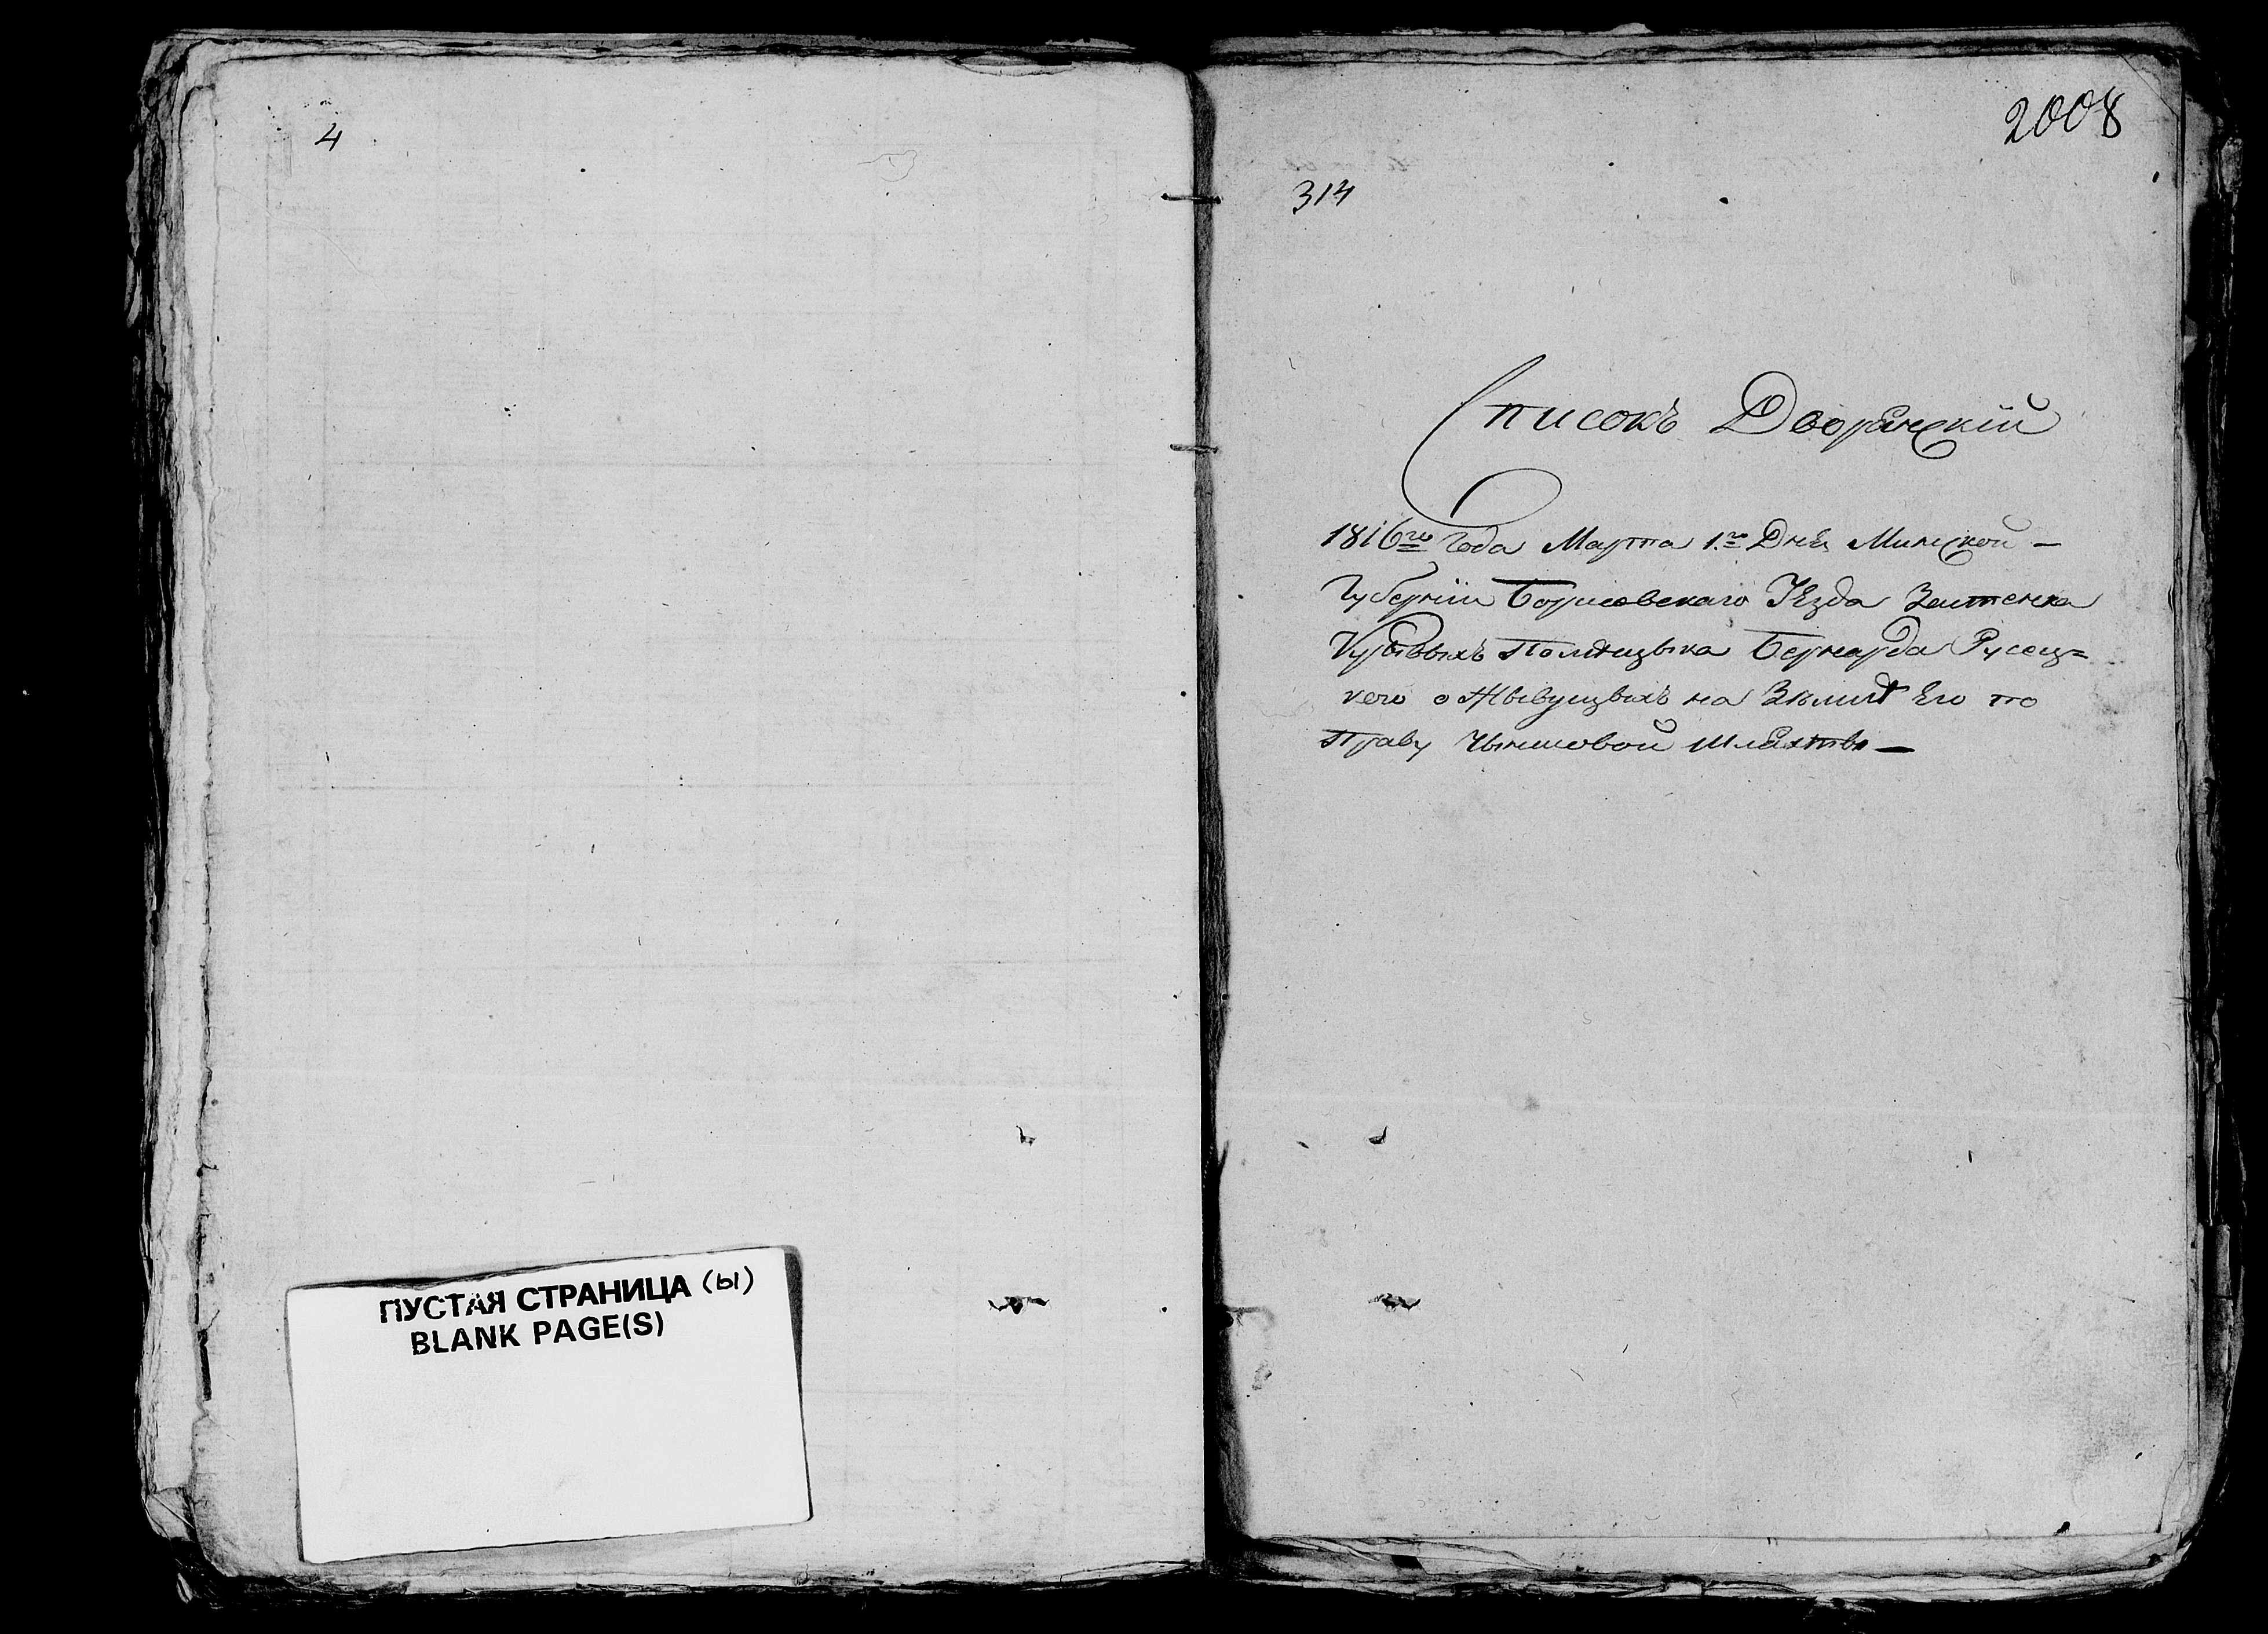 4
ПУСТАЯ СТРАНИЦА (ы)
BLANK PAGE(S)
2008
314
Списокъ Дворянскій
1816го Года Марта 1.го Дня Минской —
Губерніи Борисовскаго Уѣзда
Бернарда Русец=
кого о Жывущыхъ на Зѣмлѣ Его по
Праву Чыншовой Шляхты —